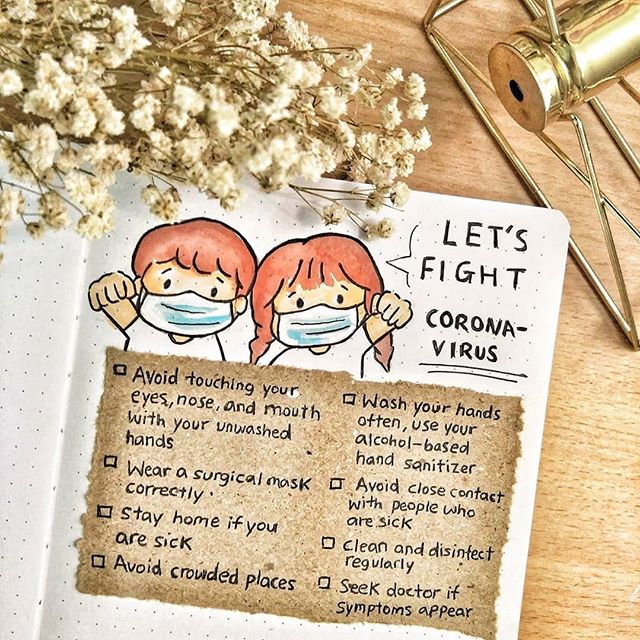 LET'S
FIGHT
CORONA-
VIRUS
Avoid touching your
eyes, nose, and mouth
with your unwashed
hands
Wear a surgical mask
correctly.
Stay home if you
are sick
Avoid crowded places
Wash your hands
often, use your
alcohol-based
hand sanitizer
Avoid close contact
with people who
are sick
Clean and disinfect
regularly
Seek doctor if
symptoms appear